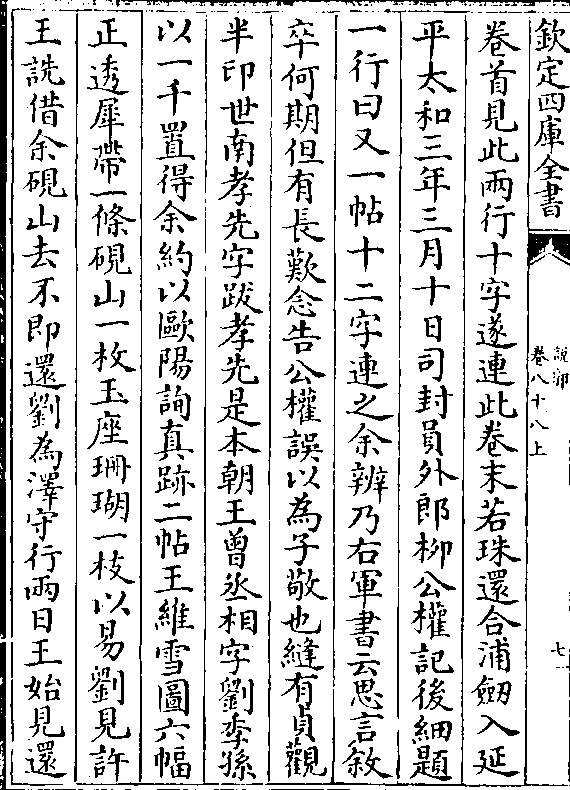 欽定四庫全書
說郛
卷八十八上
七
卷首見此兩行十字遂連此卷末若珠還合浦劒入延
平太和三年三月十日司封員外郎柳公權記後細題
一行曰又一帖十二字連之余辨乃右軍書云思言敘
卒何期但有長歎念告公權誤以為子敬也縫有貞觀
半印世南孝先字跋孝先是本朝王曾丞相字劉季孫
以一千置得余約以歐陽詢真跡二帖王維雪圖六幅
正透犀帶一條硯山一枚玉座珊瑚一枝以易劉見許
王詵借余硯山去不即還劉為澤守行兩日王始見還